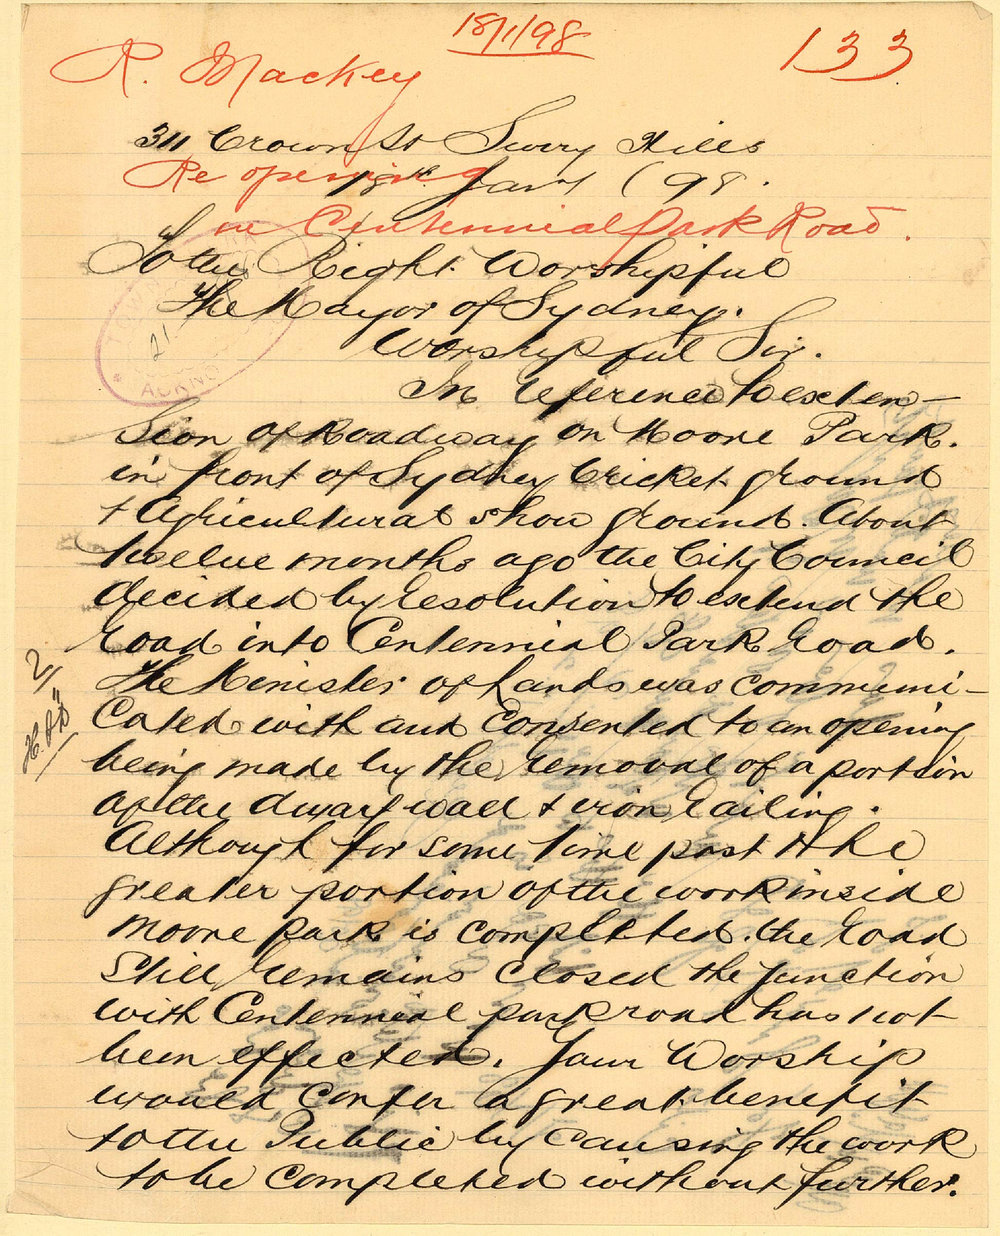 18/1/98
133
R. Mackey
311 Crown St Surry Hills
Re opening
18th Jany (98.
in Centennial Park Road.
To the Right Worshipful
The Mayor of Sydney.
Worshipful Sir.
In reference to exten-
sion of Roadway on Moore Park.
in front of Sydney Cricket ground
& Agricultural show ground. About
twelve months ago the City Council
decided by resolution to extend the
road into Centennial Park road.
The Minister of Lands was communi-
cated with and consented to an opening
being made by the removal of a portion
of the dwarf wall & iron railing.
Although for some time past the
greater portion of the work inside
Moore Park is completed. the road
still remains closed the junction
with Centennial park road has not
been effected. Your Worship
would confer a great benefit
to the Public by causing the work
to be completed without further.
TOWN
21
ACKNO
2/